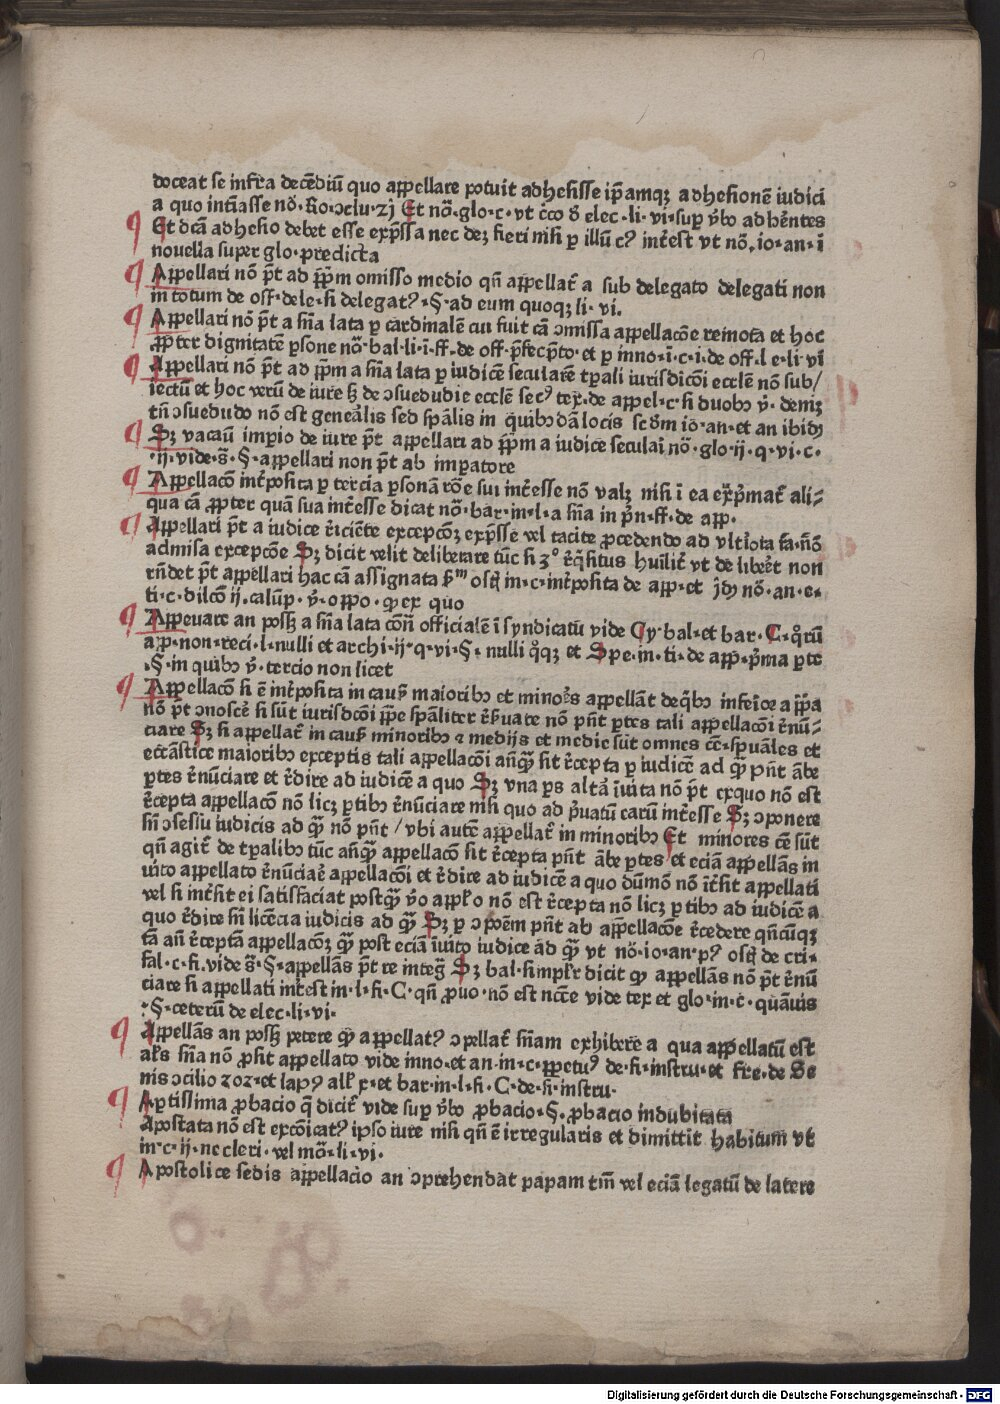 doceat se infra decēdiū quo appellare potuit adhesisse ip̄amqȝ adhesionē iudici
a quo intīasse nō·Ro·ↄclu·zj Et nō·glo·c·vt c̄co d̄ elec·li·vi·sup v̄bo adhēntes
Et dc̄a adhesio debet esse exp̄ssa nec deȝ fieri nisi ꝑ illū cꝰ int̄est vt nō·io·an·ī
nouella super glo·predicta
Appellari nō pt̄ ad pp̄m omisso medio qn̄ appellat̄ a sub delegato delegati non
in totum de off·dele·si delegatꝰ·§·ad eum quoqȝ li·vi·
Appellari nō pt̄ a sn̄ia lata ꝑ cardinalē cui fuit cā ↄmissa appellacōe remota et hoc
ꝓpter dignitatē ꝑsone nō·bal·li·i·ff·de off·p̄fec p̄to·et ꝑ inno·i·c·i·de off·l e·li vi
Appellari nō pt̄ ad pp̄m a sn̄ia lata ꝑ iudicē secularē tꝑali iurisdicōi eccl̄e nō sub/
iectum et hoc verū de iure sȝ de ↄsuedudie eccl̄e secꝰ tex·de appel·c·si duobꝫ v̄·demȝ
tn̄ ↄsuedudo nō est genealis sed spālis in quibꝫdā locis scd̄m io·an·et an ibidȝ
Sȝ vacaū imꝑio de iure pt̄ appellari ad pp̄m a iudice seculai nō·glo·ij·q·vi·c·
·ij·vide·s̄·§·appellari non pt̄ ab imꝑatore
Appellacō int̄posita ꝑ tercia ꝑsonā rōe sui int̄esse nō valȝ nisi ī ea exp̄mat̄ ali⸗
qua cā ꝓpter quā sua int̄esse dicat nō·bar·in·l·a sn̄ia in p̄n·ff·de app·
Appellari pt̄ a iudice r̄iciēte excepcōȝ exp̄sse vel tacite ꝓcedendo ad vlt̄iota
admisa excepcōe Sȝ dicit velit deliberare tūc si 3° r̄q̄situs huīlit̄ vt de libet̄ non
rn̄det pt̄ appellari hac cā assignata in·c·int̄posita de app·et nō·an·e·
ti·c·dilcō ij·calūp·v̄·oppo·ꝙ ex quo
Appeuare an possȝ a sn̄ia lata con̄ officialē ī syndicatū vide Cy·bal·et bar·C·
app·non·reci·l·nulli et archi·ij·q·vi·§·nulli et Spe·in·ti·de app·p̄ma ꝑte
·§·in quibꝫ v̄·tercio non licet
Appellacō si ē int̄posita in caus̄ maioribꝫ et minoēs appellāt de inferioꝫ a pp̄a
nō pt̄ ↄnosce si sūt iurisdcōi pp̄e spāliter r̄s̄uate nō pn̄t ꝑtes tali appellacōi r̄nū⸗
ciare Sȝ si appellat̄ in caus̄ minoribꝫ ⁊ medijs et medie sūt omnes cē·spūales et
ecc̄astice maioribꝫ exceptis tali appellacōi an̄q̄ȝ sit r̄cepta ꝑ iudicē ad q̄ȝ pn̄t ābe
ꝑtes r̄nūciare et r̄dire ad iudicē a quo Sȝ vna ꝑs altā īuita nō pt̄ exquo nō est
r̄cepta appellacō nō licȝ ꝑtibꝫ r̄nūciare nisi quo ad p̄uatū carū int̄esse Sȝ ↄponere
sn̄ ↄsesiu iudicis ad q̄ȝ nō pn̄t / vbi autē appellat̄ in minoribꝫ Et minores cē sūt
qn̄ agit̄ de tꝑalibꝫ tūc an̄q̄ȝ appellacō sit r̄cepta pn̄t ābe ꝑtes et eciā appellās in
uito appellato r̄nūciaē appellacōi et r̄dire ad iudicē a quo dūmō nō īt̄sit appellati
vel si int̄sit ei satisfaciat postq̄ȝ v̄o appl̄o nō est r̄cepta nō licȝ ꝑtibꝫ ad iudicē a
quo r̄dire sn̄ licēcia iudicis ad q̄ȝ Sȝ ꝑ ↄpoēm pn̄t ab appellacōe r̄cedere qn̄cūqȝ
tā an̄ r̄ceptā appellacōȝ q̄ȝ post eciā īuito iudice ad q̄ȝ vt nō·io·an·pꝰ de cri·
fal·c·fi·vide s̄·§·appellās pt̄ re inteḡ Sȝ bal·simpl̄r dicit ꝙ appellās nō pt̄ r̄nū
ciare si appellati int̄est in·l·fi·C·qn̄ ꝓuo·nō est ncc̄e vide tex et glo·in·c·quāuis
·§·ceterū de elec·li·vi·
Appellās an possȝ petere ꝙ appellatꝰ ↄpellat̄ sn̄iam exhibere a qua appellatū est
al̄s sn̄ia nō ꝓsit appellato vide inno·et an·in·c·ꝑpetuꝰ de·fi·instru·et fre·de Se
nis ↄcilio zoz·et lapꝰ all̄ x·et bar·in·l·fi·C·de·fi·instru·
Aꝑtissima ꝓbacio q̄ dicit̄ vide sup v̄bo ꝓbacio·§·ꝓbacio indubitata
Apostata nō est excōicatꝰ ipso iure nisi qn̄ ē irregularis et dimittit habitum vt̄
in·c·ij·ne cleri·vel mō·li·vi·
Apostolice sedis appellacio an ↄprehendat papam tm̄ vel eciā legatū de latere
Digitalisierung gefördert durch die Deutsche Forschungsgemeinschaft - DFG